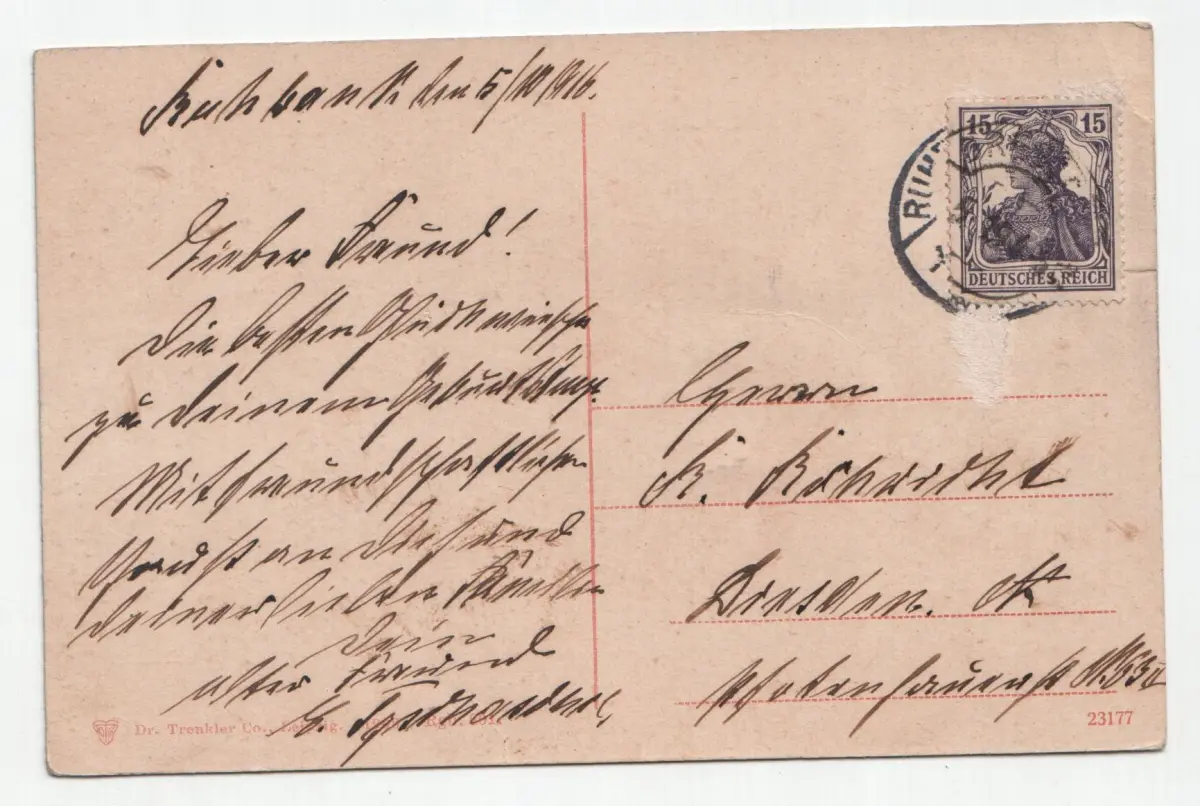 Ruhbank den 5/10 1916.
Lieber Freund!
Die besten Glückwünsche
zu deinem Geburtstag.
Mit freundschaftlichem
Gruß an Dich und
deiner lieben Familie
Dein
alter Freund
15 15
DEUTSCHES REICH
RUH
Herrn
R. Röhricht
Dresden. A
Pfotenhauerst
Dr. Trenkler Co., Leipzig.
23177